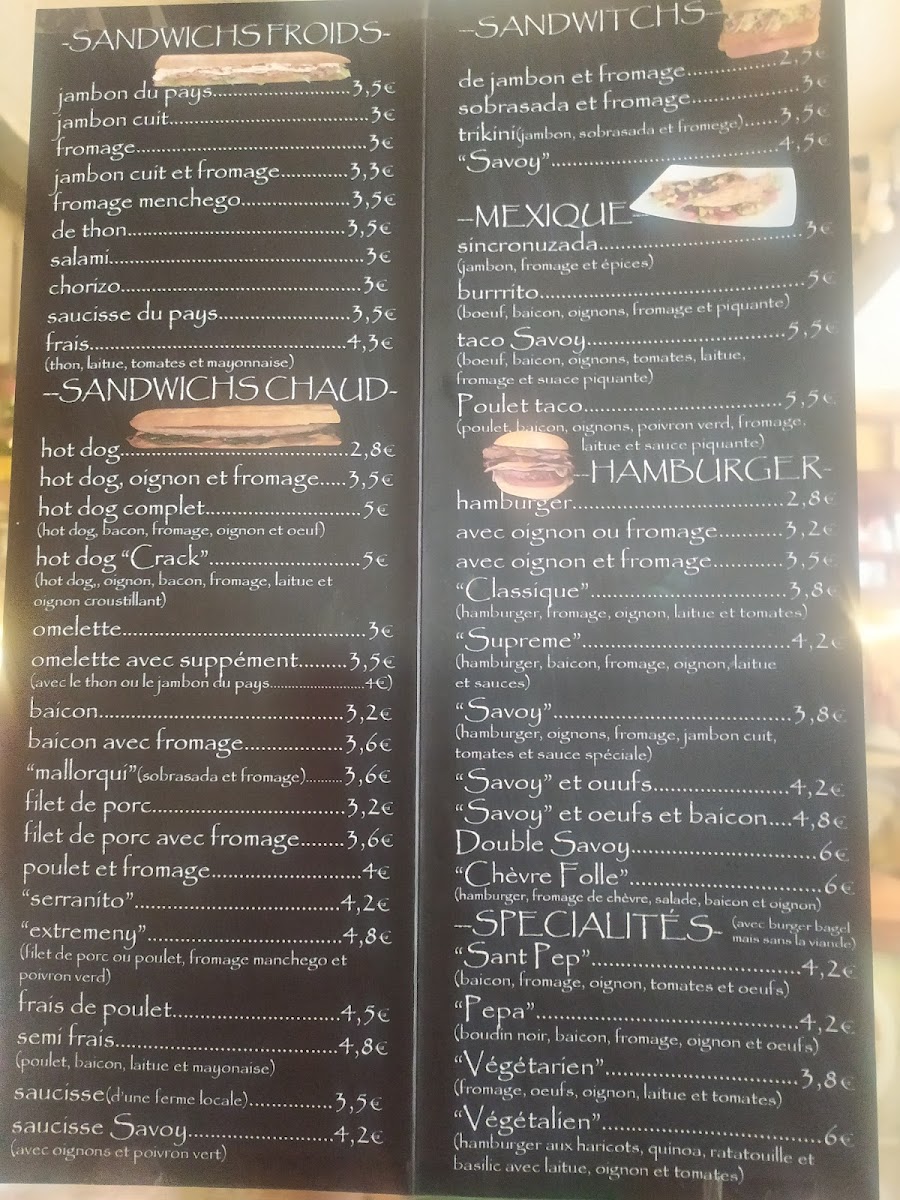 -SANDWICHS FROIDS-
jambon du pays........................3,5€
jambon cuit...................................3€
fromage........................................3€
jambon cuit et fromage............3,3€
fromage menchego...................3,5€
de thon......................................3,5€
salami............................................3€
chorizo..........................................3€
saucisse du pays.......................3,5€
frais............................................4,3€
(thon, laitue, tomates et mayonnaise)
--SANDWICHS CHAUD-
hot dog.......................................2,8€
hot dog, oignon et fromage.....3,5€
hot dog complet..........................5€
(hot dog, bacon, fromage, oignon et oeuf)
hot dog “Crack”.........................5€
(hot dog,, oignon, bacon, fromage, laitue et
oignon croustillant)
omelette........................................3€
omelette avec suppément.........3,5€
(avec le thon ou le jambon du pays.........................4€)
baicon..........................................3,2€
baicon avec fromage.................3,6€
“mallorquí”(sobrasada et fromage)..........3,6€
filet de porc................................3,2€
filet de porc avec fromage.......3,6€
poulet et fromage.........................4€
“serranito”..................................4,2€
“extremeny”................................4,8€
(filet de porc ou poulet, fromage manchego et
poivron verd)
frais de poulet...........................4,5€
semi frais.....................................4,8€
(poulet, baicon, laitue et mayonaise)
saucisse(d'une ferme locale).............3,5€
saucisse Savoy........................4,2€
(avec oignons et poivron vert)
--SANDWITCHS--
de jambon et fromage..............2,5€
sobrasada et fromage.................3€
trikini(jambon, sobrasada et fromege)......3,5€
“Savoy”.....................................4,5€
--MEXIQUE-
sincronuzada................................3€
(jambon, fromage et épices)
burrrito..........................................5€
(boeuf, baicon, oignons, fromage et piquante)
taco Savoy...............................5,5€
(boeuf, baicon, oignons, tomates, laitue,
fromage et suace piquante)
Poulet taco................................5,5€
(poulet, baicon, oignons, poivron verd, fromage,
laitue et sauce piquante)
--HAMBURGER-
hamburger..................................2,8€
avec oignon ou fromage...........3,2€
avec oignon et fromage............3,5€
“Classique”................................3,8€
(hamburger, fromage, oignon, laitue et tomates)
“Supreme”..................................4,2€
(hamburger, baicon, fromage, oignon, laitue
et sauces)
“Savoy”.....................................3,8€
(hamburger, oignons, fromage, jambon cuit,
tomates et sauce spéciale)
“Savoy” et ouufs......................4,2€
“Savoy” et oeufs et baicon....4,8€
Double Savoy.............................6€
“Chèvre Folle”..............................6€
(hamburger, fromage de chèvre, salade, baicon et oignon)
--SPECIALITÉS-
(avec burger bagel
mais sans la viande)
“Sant Pep”.................................4,2€
(baicon, fromage, oignon, tomates et oeufs)
“Pepa”........................................4,2€
(boudin noir, baicon, fromage, oignon et oeufs)
“Végétarien”..............................3,8€
(fromage, oeufs, oignon, laitue et tomates)
“Végétalien”..................................6€
(hamburger aux haricots, quinoa, ratatouille et
basilic avec laitue, oignon et tomates)